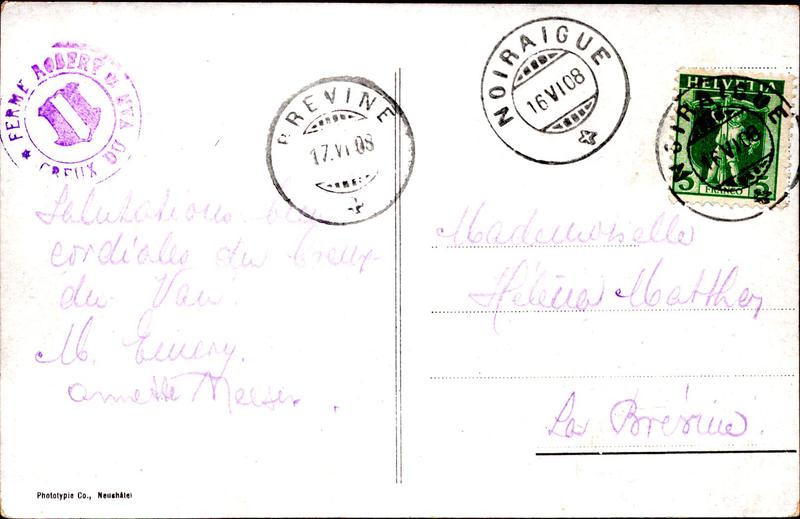 FERME ROBERT
CREUX DU VAN
BREVINE
17.VI.08
NOIRAIGUE
16.VI.08
HELVETIA
NOIRAIGUE
16.VI.08
5 FRANCO 5
Salutations bien
cordiales du Creux-
du Van.
M. Emery.
Annette
Mademoiselle
Hélèna Matthey
La Brévine.
Phototypie Co., Neuchâtel